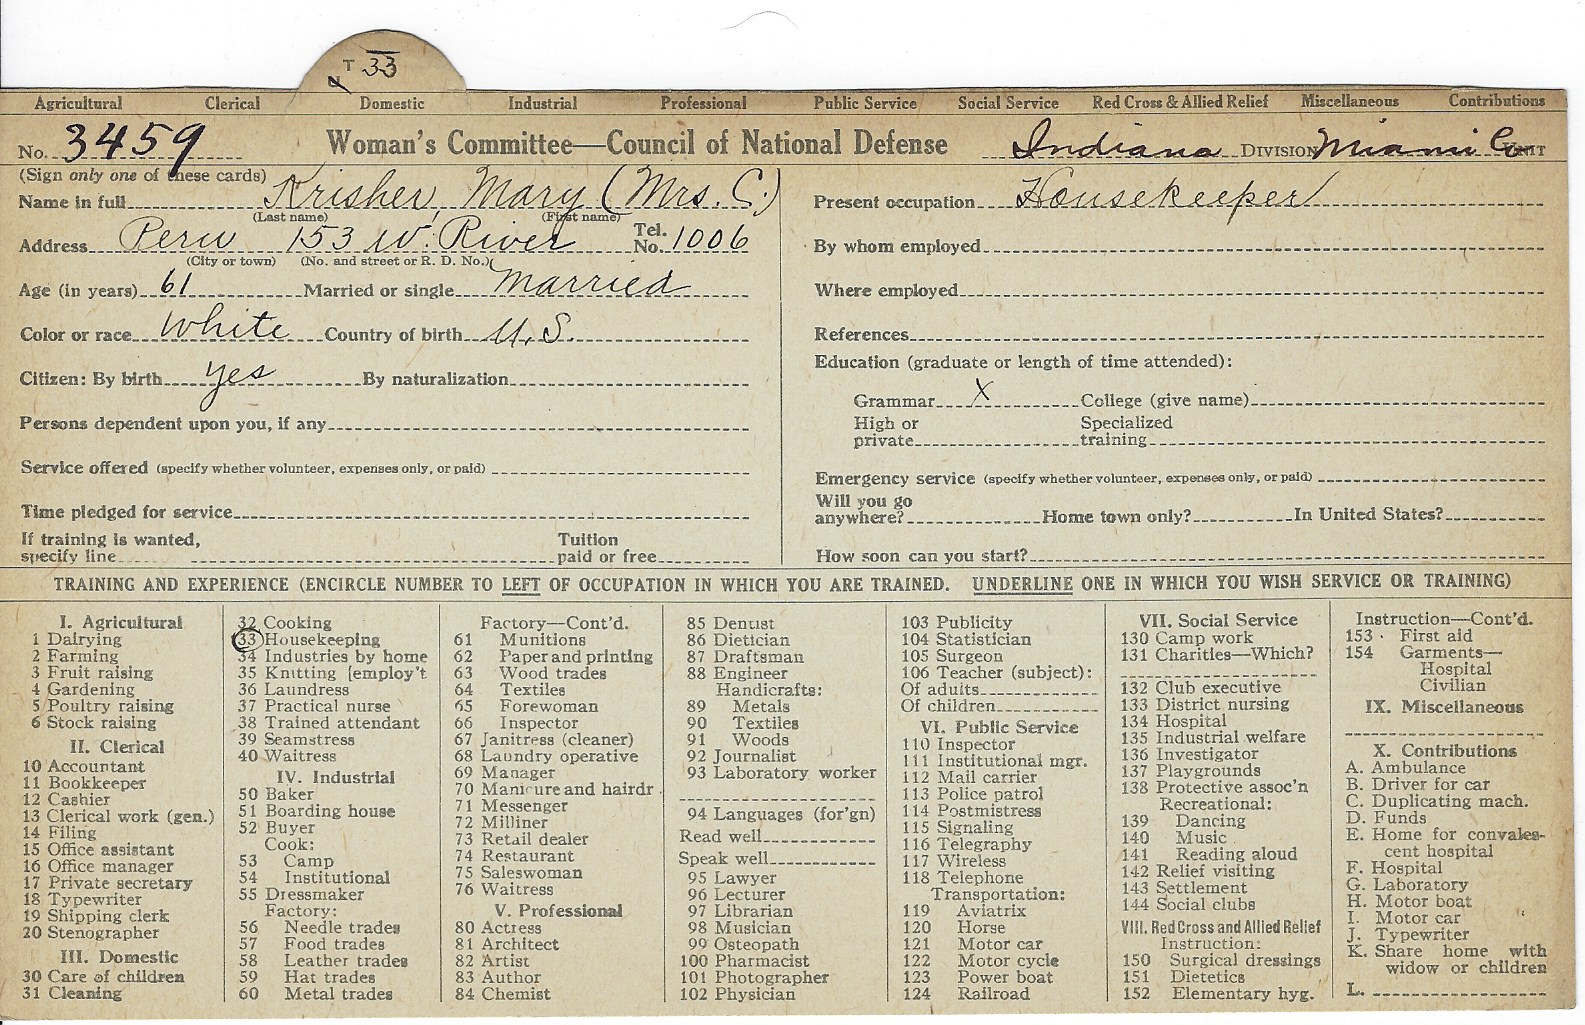 T 33
Agricultural Clerical Domestic Industrial Professional Public Service Social Service Red Cross & Allied Relief Miscellaneous Contributions
No. 3459 Woman's Committee—Council of National Defense Indiana DIVISION Miami Co UNIT
(Sign only one of these cards)
Name in full Krisher, Mary (Mrs. C.)
(Last name) (First name)
Address Peru 153 W. River Tel. No. 1006
(City or town) (No. and street or R. D. No.)
Age (in years) 61 Married or single Married
Color or race White Country of birth U.S.
Citizen: By birth yes By naturalization
Persons dependent upon you, if any
Service offered (specify whether volunteer, expenses only, or paid)
Time pledged for service
If training is wanted, specify line Tuition paid or free
Present occupation Housekeeper
By whom employed
Where employed
References
Education (graduate or length of time attended):
Grammar X College (give name)
High or private Specialized training
Emergency service (specify whether volunteer, expenses only, or paid)
Will you go anywhere? Home town only? In United States?
How soon can you start?
TRAINING AND EXPERIENCE (ENCIRCLE NUMBER TO LEFT OF OCCUPATION IN WHICH YOU ARE TRAINED. UNDERLINE ONE IN WHICH YOU WISH SERVICE OR TRAINING)
I. Agricultural
1 Dairying
2 Farming
3 Fruit raising
4 Gardening
5 Poultry raising
6 Stock raising
II. Clerical
10 Accountant
11 Bookkeeper
12 Cashier
13 Clerical work (gen.)
14 Filing
15 Office assistant
16 Office manager
17 Private secretary
18 Typewriter
19 Shipping clerk
20 Stenographer
III. Domestic
30 Care of children
31 Cleaning
32 Cooking
33 Housekeeping
34 Industries by home
35 Knitting [employ't
36 Laundress
37 Practical nurse
38 Trained attendant
39 Seamstress
40 Waitress
IV. Industrial
50 Baker
51 Boarding house
52 Buyer
Cook:
53 Camp
54 Institutional
55 Dressmaker
Factory:
56 Needle trades
57 Food trades
58 Leather trades
59 Hat trades
60 Metal trades
Factory—Cont'd.
61 Munitions
62 Paper and printing
63 Wood trades
64 Textiles
65 Forewoman
66 Inspector
67 Janitress (cleaner)
68 Laundry operative
69 Manager
70 Manicure and hairdr.
71 Messenger
72 Milliner
73 Retail dealer
74 Restaurant
75 Saleswoman
76 Waitress
V. Professional
80 Actress
81 Architect
82 Artist
83 Author
84 Chemist
85 Dentist
86 Dietician
87 Draftsman
88 Engineer
Handicrafts:
89 Metals
90 Textiles
91 Woods
92 Journalist
93 Laboratory worker
94 Languages (for'gn)
Read well
Speak well
95 Lawyer
96 Lecturer
97 Librarian
98 Musician
99 Osteopath
100 Pharmacist
101 Photographer
102 Physician
103 Publicity
104 Statistician
105 Surgeon
106 Teacher (subject):
Of adults
Of children
VI. Public Service
110 Inspector
111 Institutional mgr.
112 Mail carrier
113 Police patrol
114 Postmistress
115 Signaling
116 Telegraphy
117 Wireless
118 Telephone
Transportation:
119 Aviatrix
120 Horse
121 Motor car
122 Motor cycle
123 Power boat
124 Railroad
VII. Social Service
130 Camp work
131 Charities—Which?
132 Club executive
133 District nursing
134 Hospital
135 Industrial welfare
136 Investigator
137 Playgrounds
138 Protective assoc'n
Recreational:
139 Dancing
140 Music
141 Reading aloud
142 Relief visiting
143 Settlement
144 Social clubs
VIII. Red Cross and Allied Relief
Instruction:
150 Surgical dressings
151 Dietetics
152 Elementary hyg.
Instruction—Cont'd.
153 First aid
154 Garments—
Hospital
Civilian
IX. Miscellaneous
X. Contributions
A. Ambulance
B. Driver for car
C. Duplicating mach.
D. Funds
E. Home for convales-
cent hospital
F. Hospital
G. Laboratory
H. Motor boat
I. Motor car
J. Typewriter
K. Share home with
widow or children
L.